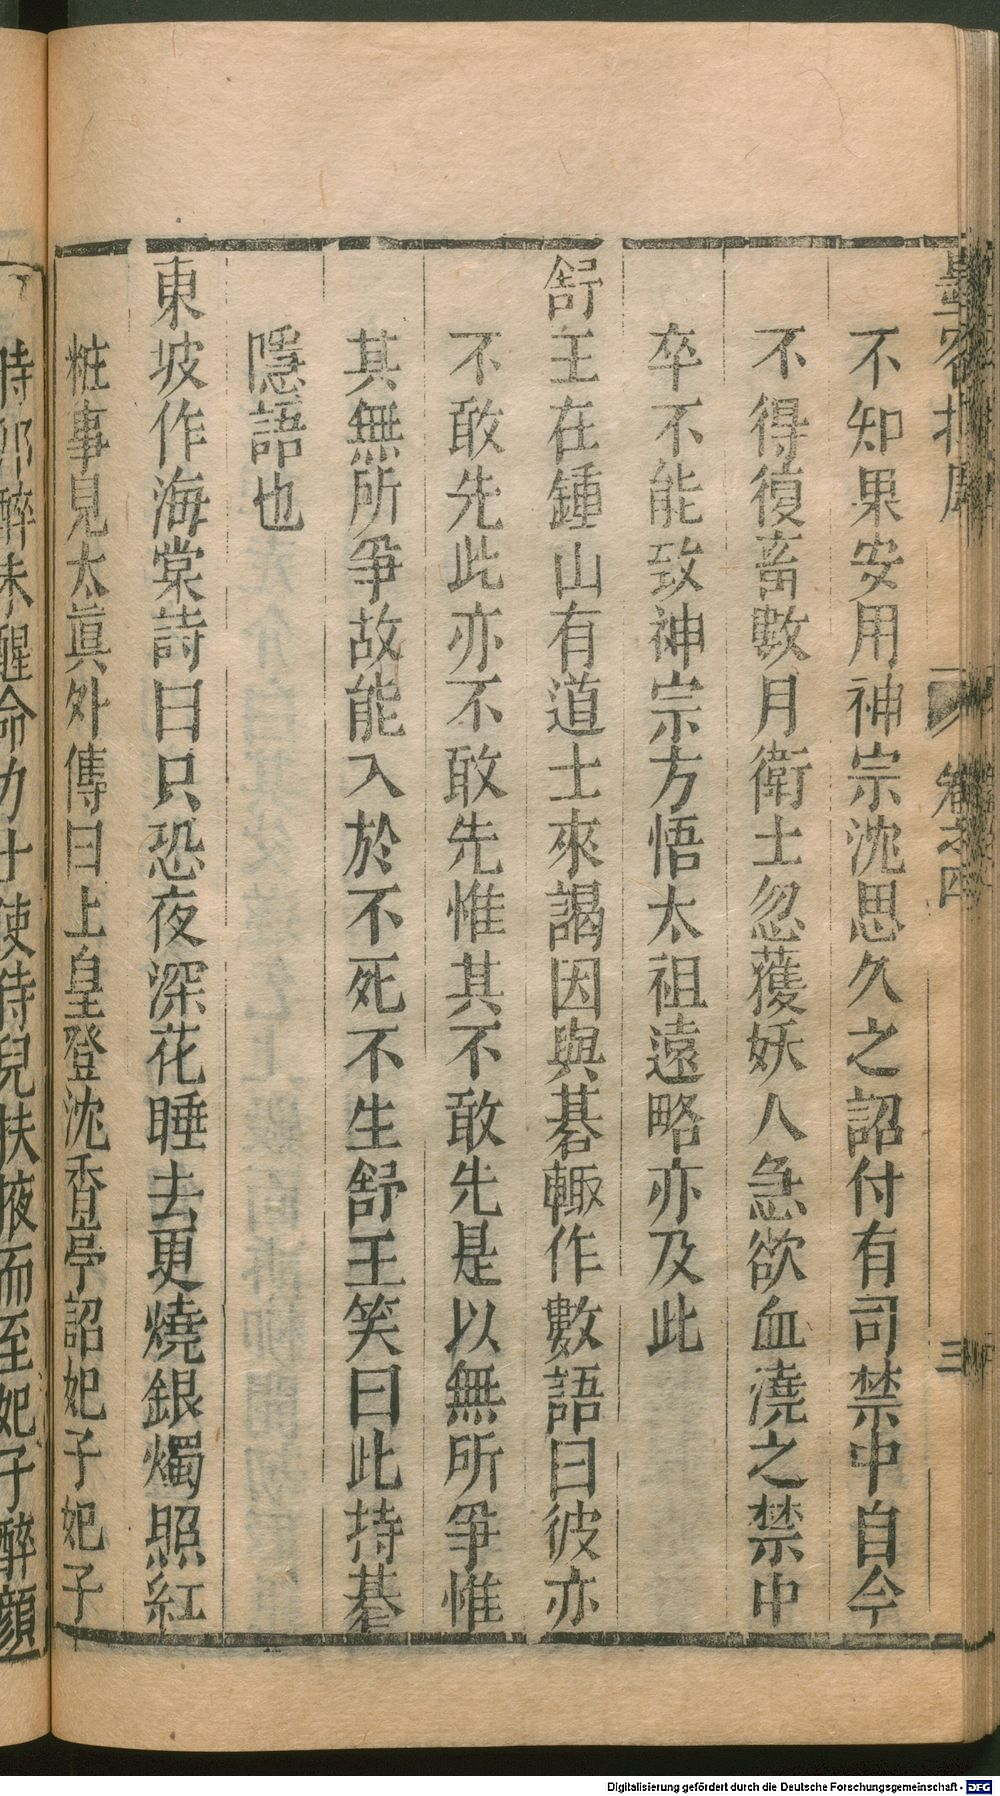 墨客揮犀 卷之四 三
不知果安用神宗沈思久之詔付有司禁中自今
不得復畜數月衛士忽獲妖人急欲血澆之禁中
卒不能致神宗方悟太祖遠略亦及此
舒王在鍾山有道士來謁因與碁輙作數語曰彼亦
不敢先此亦不敢先惟其不敢先是以無所爭惟
其無所爭故能入於不死不生舒王笑曰此持碁
隱語也
東坡作海棠詩曰只恐夜深花睡去更燒銀燭照紅
粧事見太眞外傳曰上皇登沈香亭詔妃子妃子
時卯醉未醒命力士使侍兒扶掖而至妃子醉顔
Digitalisierung gefördert durch die Deutsche Forschungsgemeinschaft - DFG